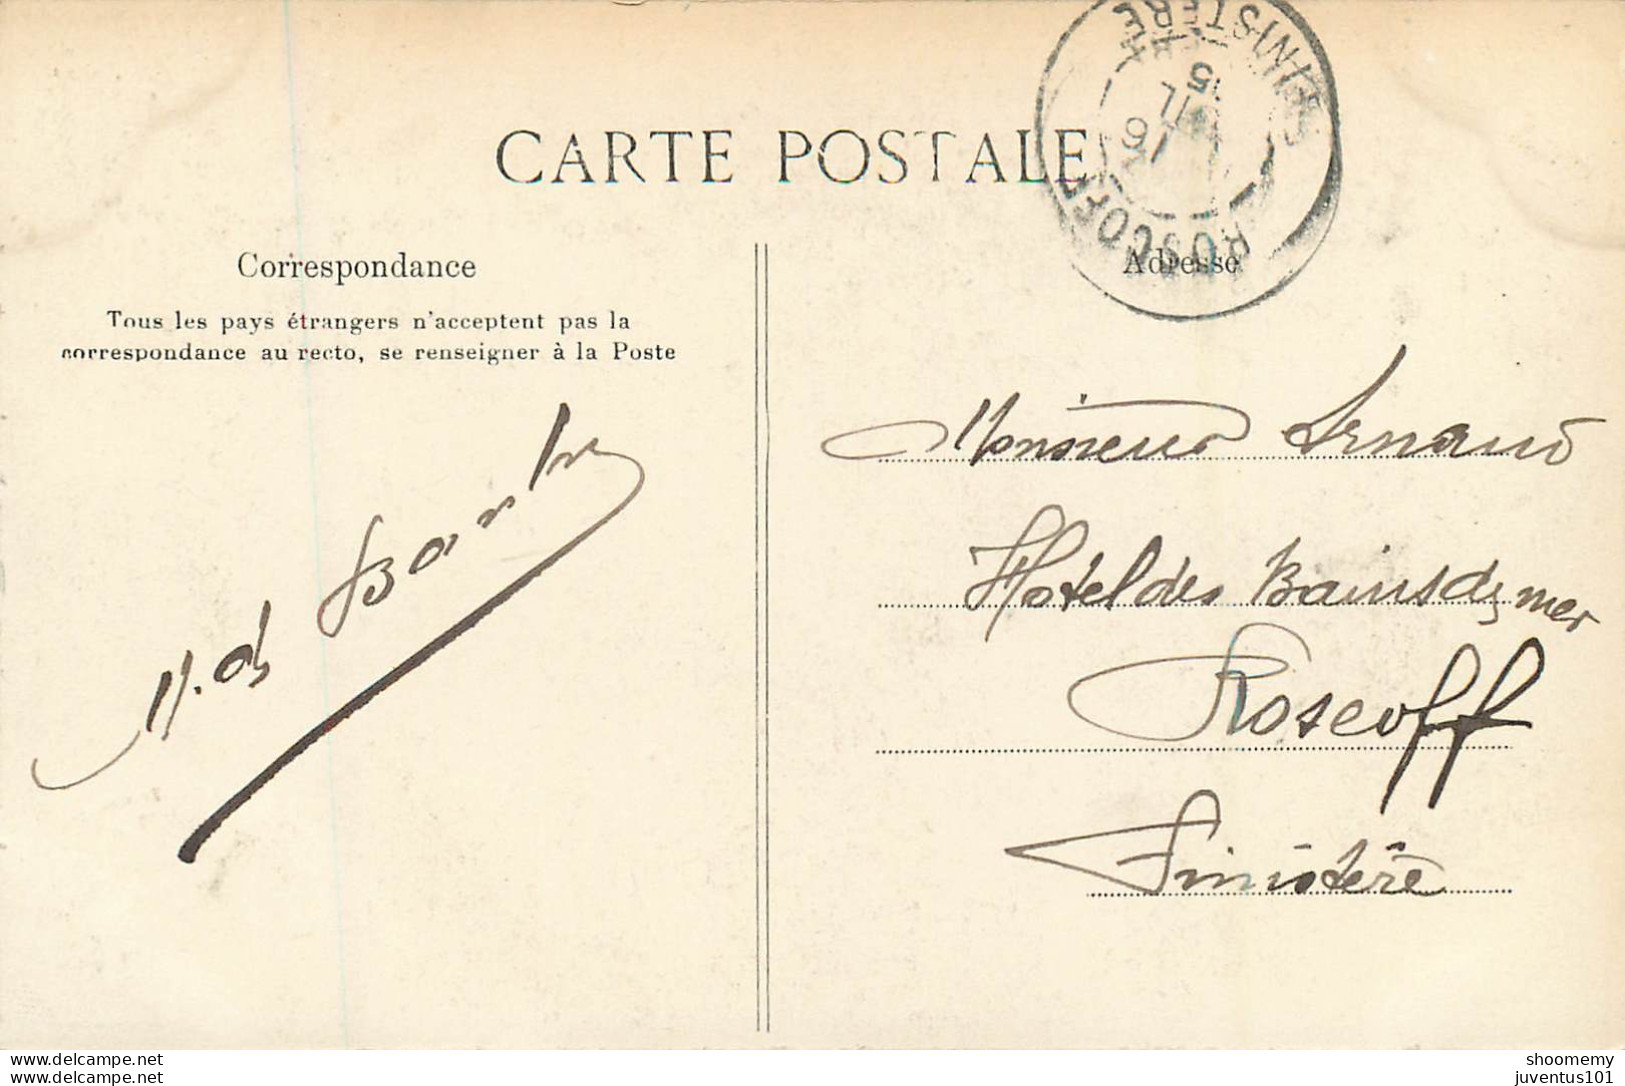 CARTE POSTALE
ROSCOFF
FINISTÈRE
16
5
Correspondance
Tous les pays étrangers n'acceptent pas la
correspondance au recto, se renseigner à la Poste
Adresse
Monsieur Arnaud
Hotel des Bains de mer
Roscoff
Finistère
delcampe.net
juventus101
shoomemy
juventus101